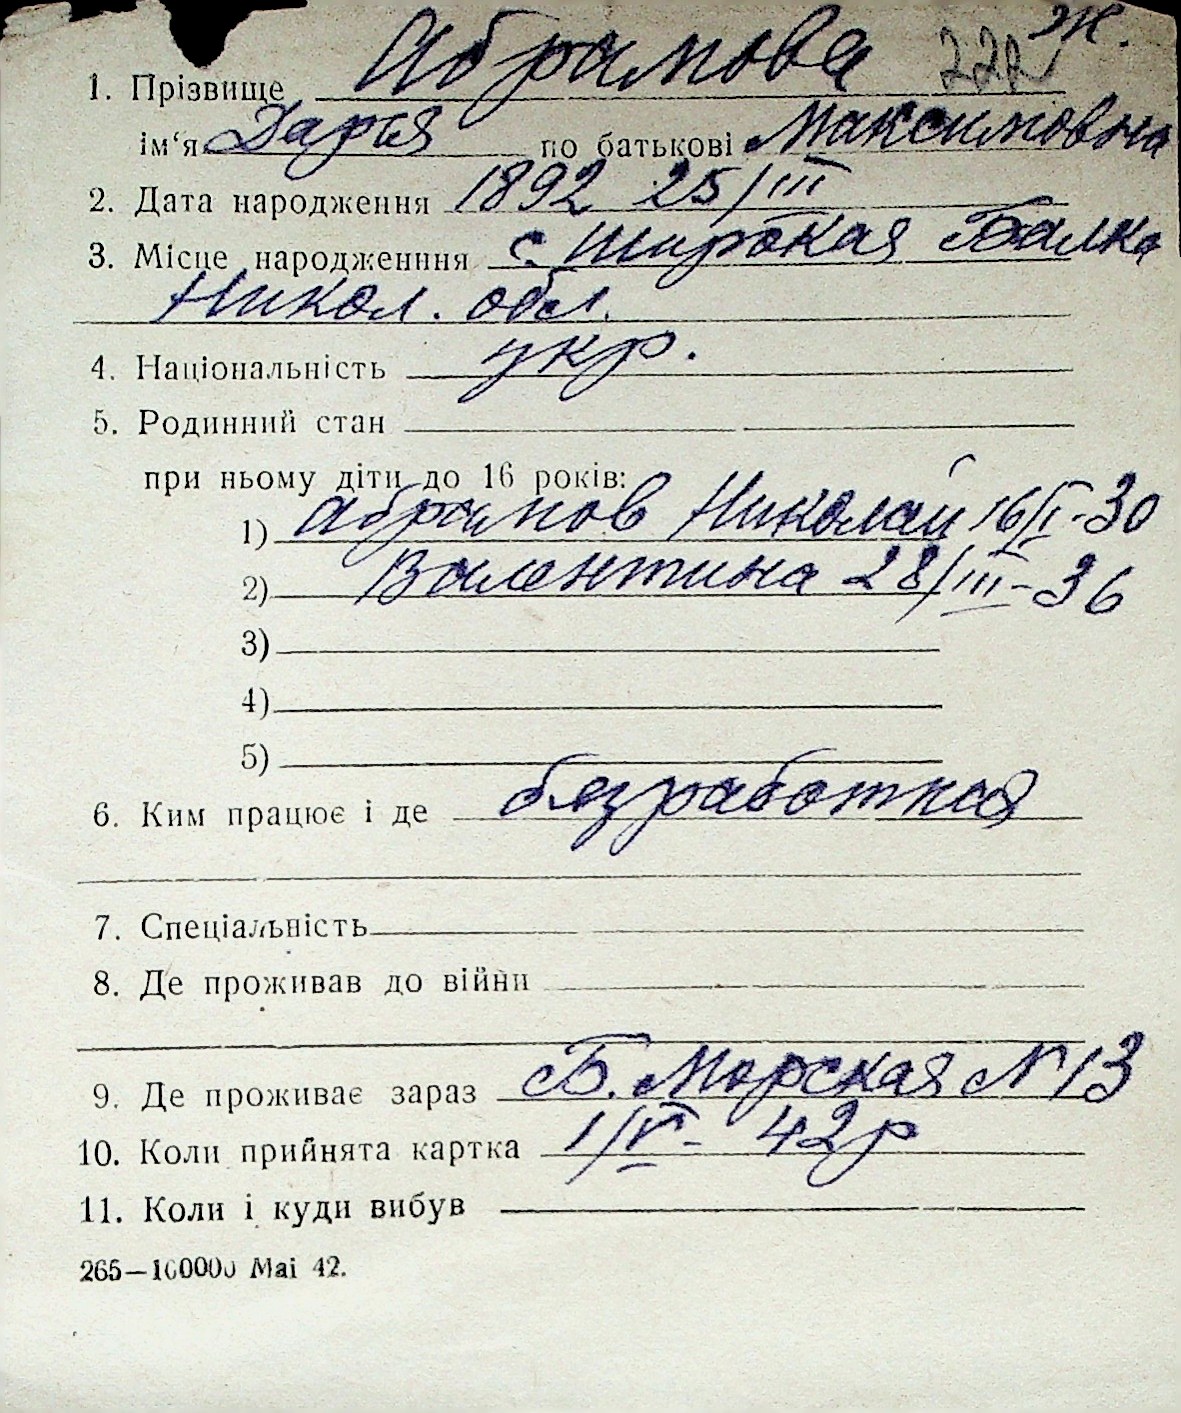 Ж.
1. Прізвище Абрамова
ім'я Дарья по батькові Максимовна
2. Дата народження 1892 25/III
3. Місце народженння с. Широкая Балка
Никол. обл.
4. Національність укр.
5. Родинний стан
при ньому діти до 16 років:
1) Абрамов Николай 16/I-30
2) Валентина 28/III-36
3)
4)
5)
6. Ким працює і де безработная
7. Спеціальність
8. Де проживав до війни
9. Де проживає зараз Б. Морская № 13
10. Коли прийнята картка 1/V- 42р
11. Коли і куди вибув
265—100000 Mai 42.